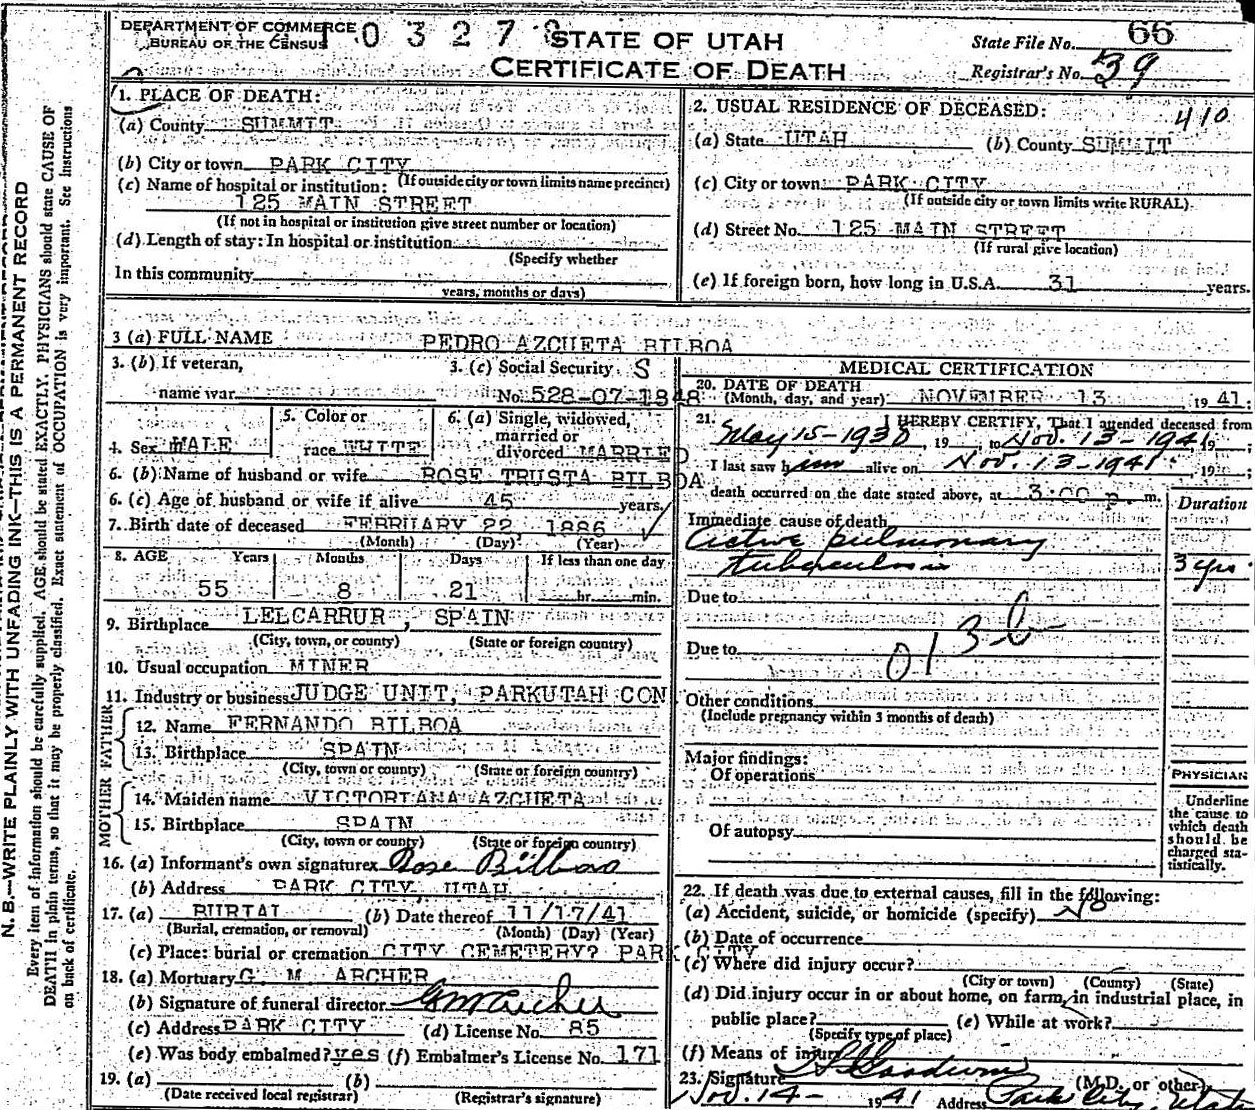 DEPARTMENT OF COMMERCE
BUREAU OF THE CENSUS
10327
STATE OF UTAH
CERTIFICATE OF DEATH
State File No. 66
Registrar's No. 39
1. PLACE OF DEATH:
(a) County SUMMIT
(b) City or town PARK CITY
(If outside city or town limits name precinct)
(c) Name of hospital or institution:
125 MAIN STREET
(If not in hospital or institution give street number or location)
(d) Length of stay: In hospital or institution
(Specify whether
In this community
years, months or days)
2. USUAL RESIDENCE OF DECEASED:
410
(a) State UTAH (b) County SUMMIT
(c) City or town: PARK CITY
(If outside city or town limits write RURAL)
(d) Street No. 125 MAIN STREET
(If rural give location)
(e) If foreign born, how long in U.S.A. 31 years.
3 (a) FULL NAME PEDRO AZCUETA BILBOA
3. (b) If veteran,
name war
3. (c) Social Security S
No. 528-07-1848
4. Sex MALE
5. Color or
race WHITE
6. (a) Single, widowed,
married or
divorced MARRIED
6. (b) Name of husband or wife ROSE TRUSTA BILBOA
6. (c) Age of husband or wife if alive 45 years
7. Birth date of deceased FEBRUARY 22 1886
(Month) (Day) (Year)
8. AGE Years Months Days If less than one day
55 8 21 hr. min.
9. Birthplace LELCARRUR, SPAIN
(City, town, or county) (State or foreign country)
10. Usual occupation MINER
11. Industry or business JUDGE UNIT, PARKUTAH CON
FATHER
12. Name FERNANDO BILBOA
13. Birthplace SPAIN
(City, town or county) (State or foreign country)
MOTHER
14. Maiden name VICTORIANA AZCUETA
15. Birthplace SPAIN
(City, town or county) (State or foreign country)
16. (a) Informant's own signature x Rose Bilbao
(b) Address PARK CITY, UTAH
17. (a) BURIAL (b) Date thereof 11/17/41
(Burial, cremation, or removal) (Month) (Day) (Year)
(c) Place: burial or cremation CITY CEMETERY? PARK CITY
18. (a) Mortuary G. M. ARCHER
(b) Signature of funeral director GM Archer
(c) Address PARK CITY (d) License No. 85
(e) Was body embalmed? yes (f) Embalmer's License No. 171
19. (a) (b)
(Date received local registrar) (Registrar's signature)
MEDICAL CERTIFICATION
20. DATE OF DEATH
(Month, day, and year) NOVEMBER 13 1941;
21. I HEREBY CERTIFY, That I attended deceased from
May 15-1938, 19 to Nov. 13-1941, 19;
I last saw him alive on Nov. 13-1941, 19;
death occurred on the date stated above, at 3:00 p. m.
Duration
Immediate cause of death
Active pulmonary
tuberculosis 3 yrs.
Due to
Due to
013 b
Other conditions
(Include pregnancy within 3 months of death)
Major findings:
Of operations
Of autopsy
PHYSICIAN
Underline
the cause to
which death
should be
charged sta-
tistically.
22. If death was due to external causes, fill in the following:
(a) Accident, suicide, or homicide (specify) No
(b) Date of occurrence
(c) Where did injury occur?
(City or town) (County) (State)
(d) Did injury occur in or about home, on farm, in industrial place, in
public place? (e) While at work?
(Specify type of place)
(f) Means of injury
23. Signature Goodwin (M.D. or other)
Nov. 14 - 1941 Address Park City, Utah
N. B.—WRITE PLAINLY WITH UNFADING INK—THIS IS A PERMANENT RECORD
Every item of information should be carefully supplied. AGE should be stated EXACTLY. PHYSICIANS should state CAUSE OF
DEATH in plain terms, so that it may be properly classified. Exact statement of OCCUPATION is very important. See Instructions
on back of certificate.